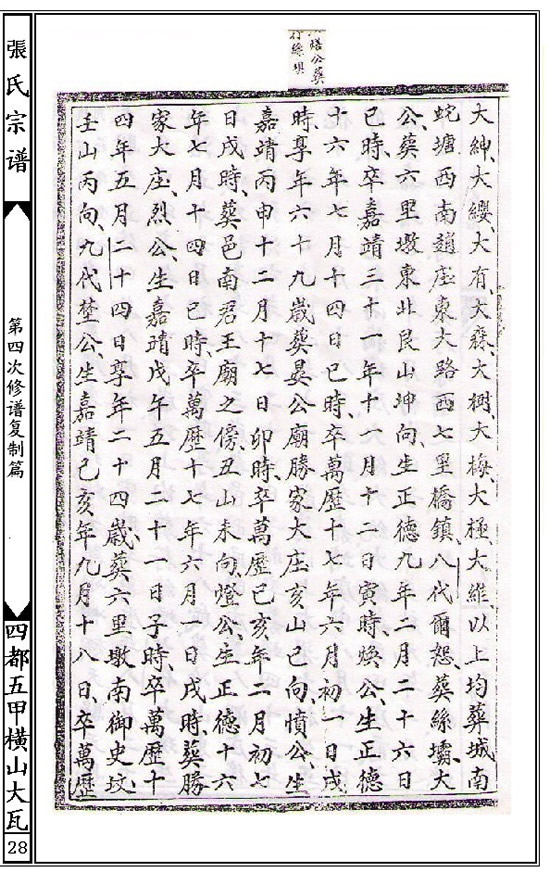 張氏宗谱
第四次修谱复制篇
四都五甲横山大瓦
28
塔公葬
行絲垻
大紳、大纓、大有、大森、大桐、大梅、大極、大維、以上均葬城南
蛇塘西南趙庄東大路西七里橋鎮、八代爾恕、葬絲壩、大
公、葬六里墩東北艮山坤向、生正德九年二月二十六日
巳時、卒嘉靖三十一年十一月十二日寅時、煥公、生正德
十六年七月十四日巳時、卒萬歷十七年六月初一日戌
時、享年六十九歲葬晏公廟勝家大庄亥山巳向、憤公、生
嘉靖丙申十二月十七日卯時、卒萬歷己亥年二月初七
日戌時、葬邑南君王廟之傍、丑山未向、燈公、生正德十六
年七月十四日巳時、卒萬歷十七年六月一日戌時、葬勝
家大庄、烈公、生嘉靖戊午五月二十一日子時、卒萬歷十
四年五月二十四日、享年二十四歲、葬六里墩南御史坟、
壬山丙向、九代埜公、生嘉靖己亥年九月十八日、卒萬歷